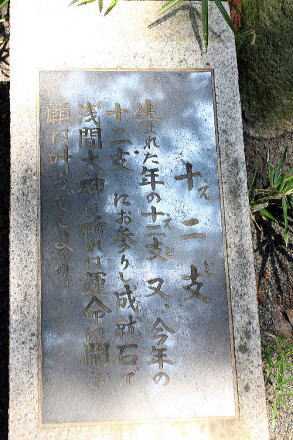 十二支
えと
生まれた年の十二支又、今年の
えと
十二支にお参りし成就石で
浅間大神に祈れば運命は開き
願は叶うでしょう。